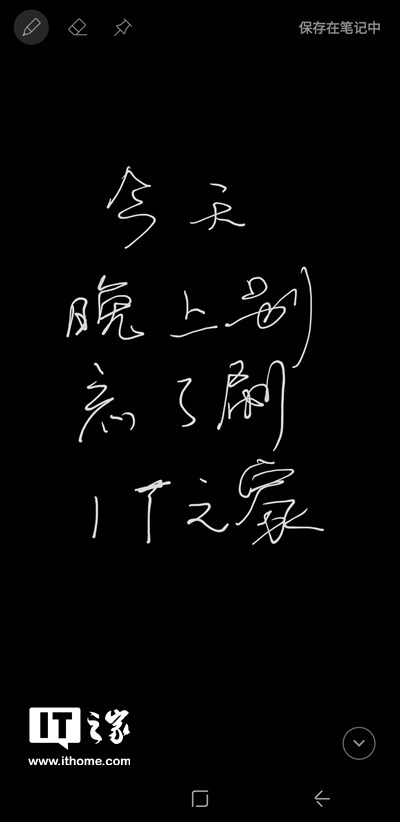 保存在笔记中
今天
晚上别
忘了刷
IT之家
IT之家
www.ithome.com